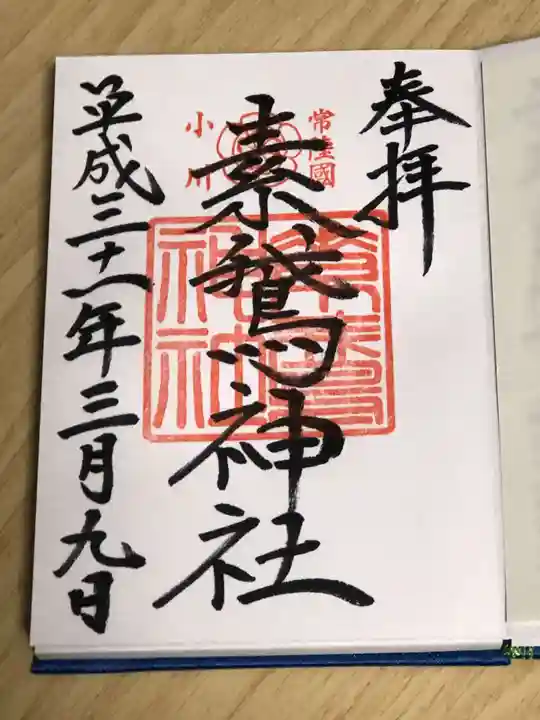 奉拝
常陸國
素鵞神社
小川
素鵞
神社
平成三十一年三月九日